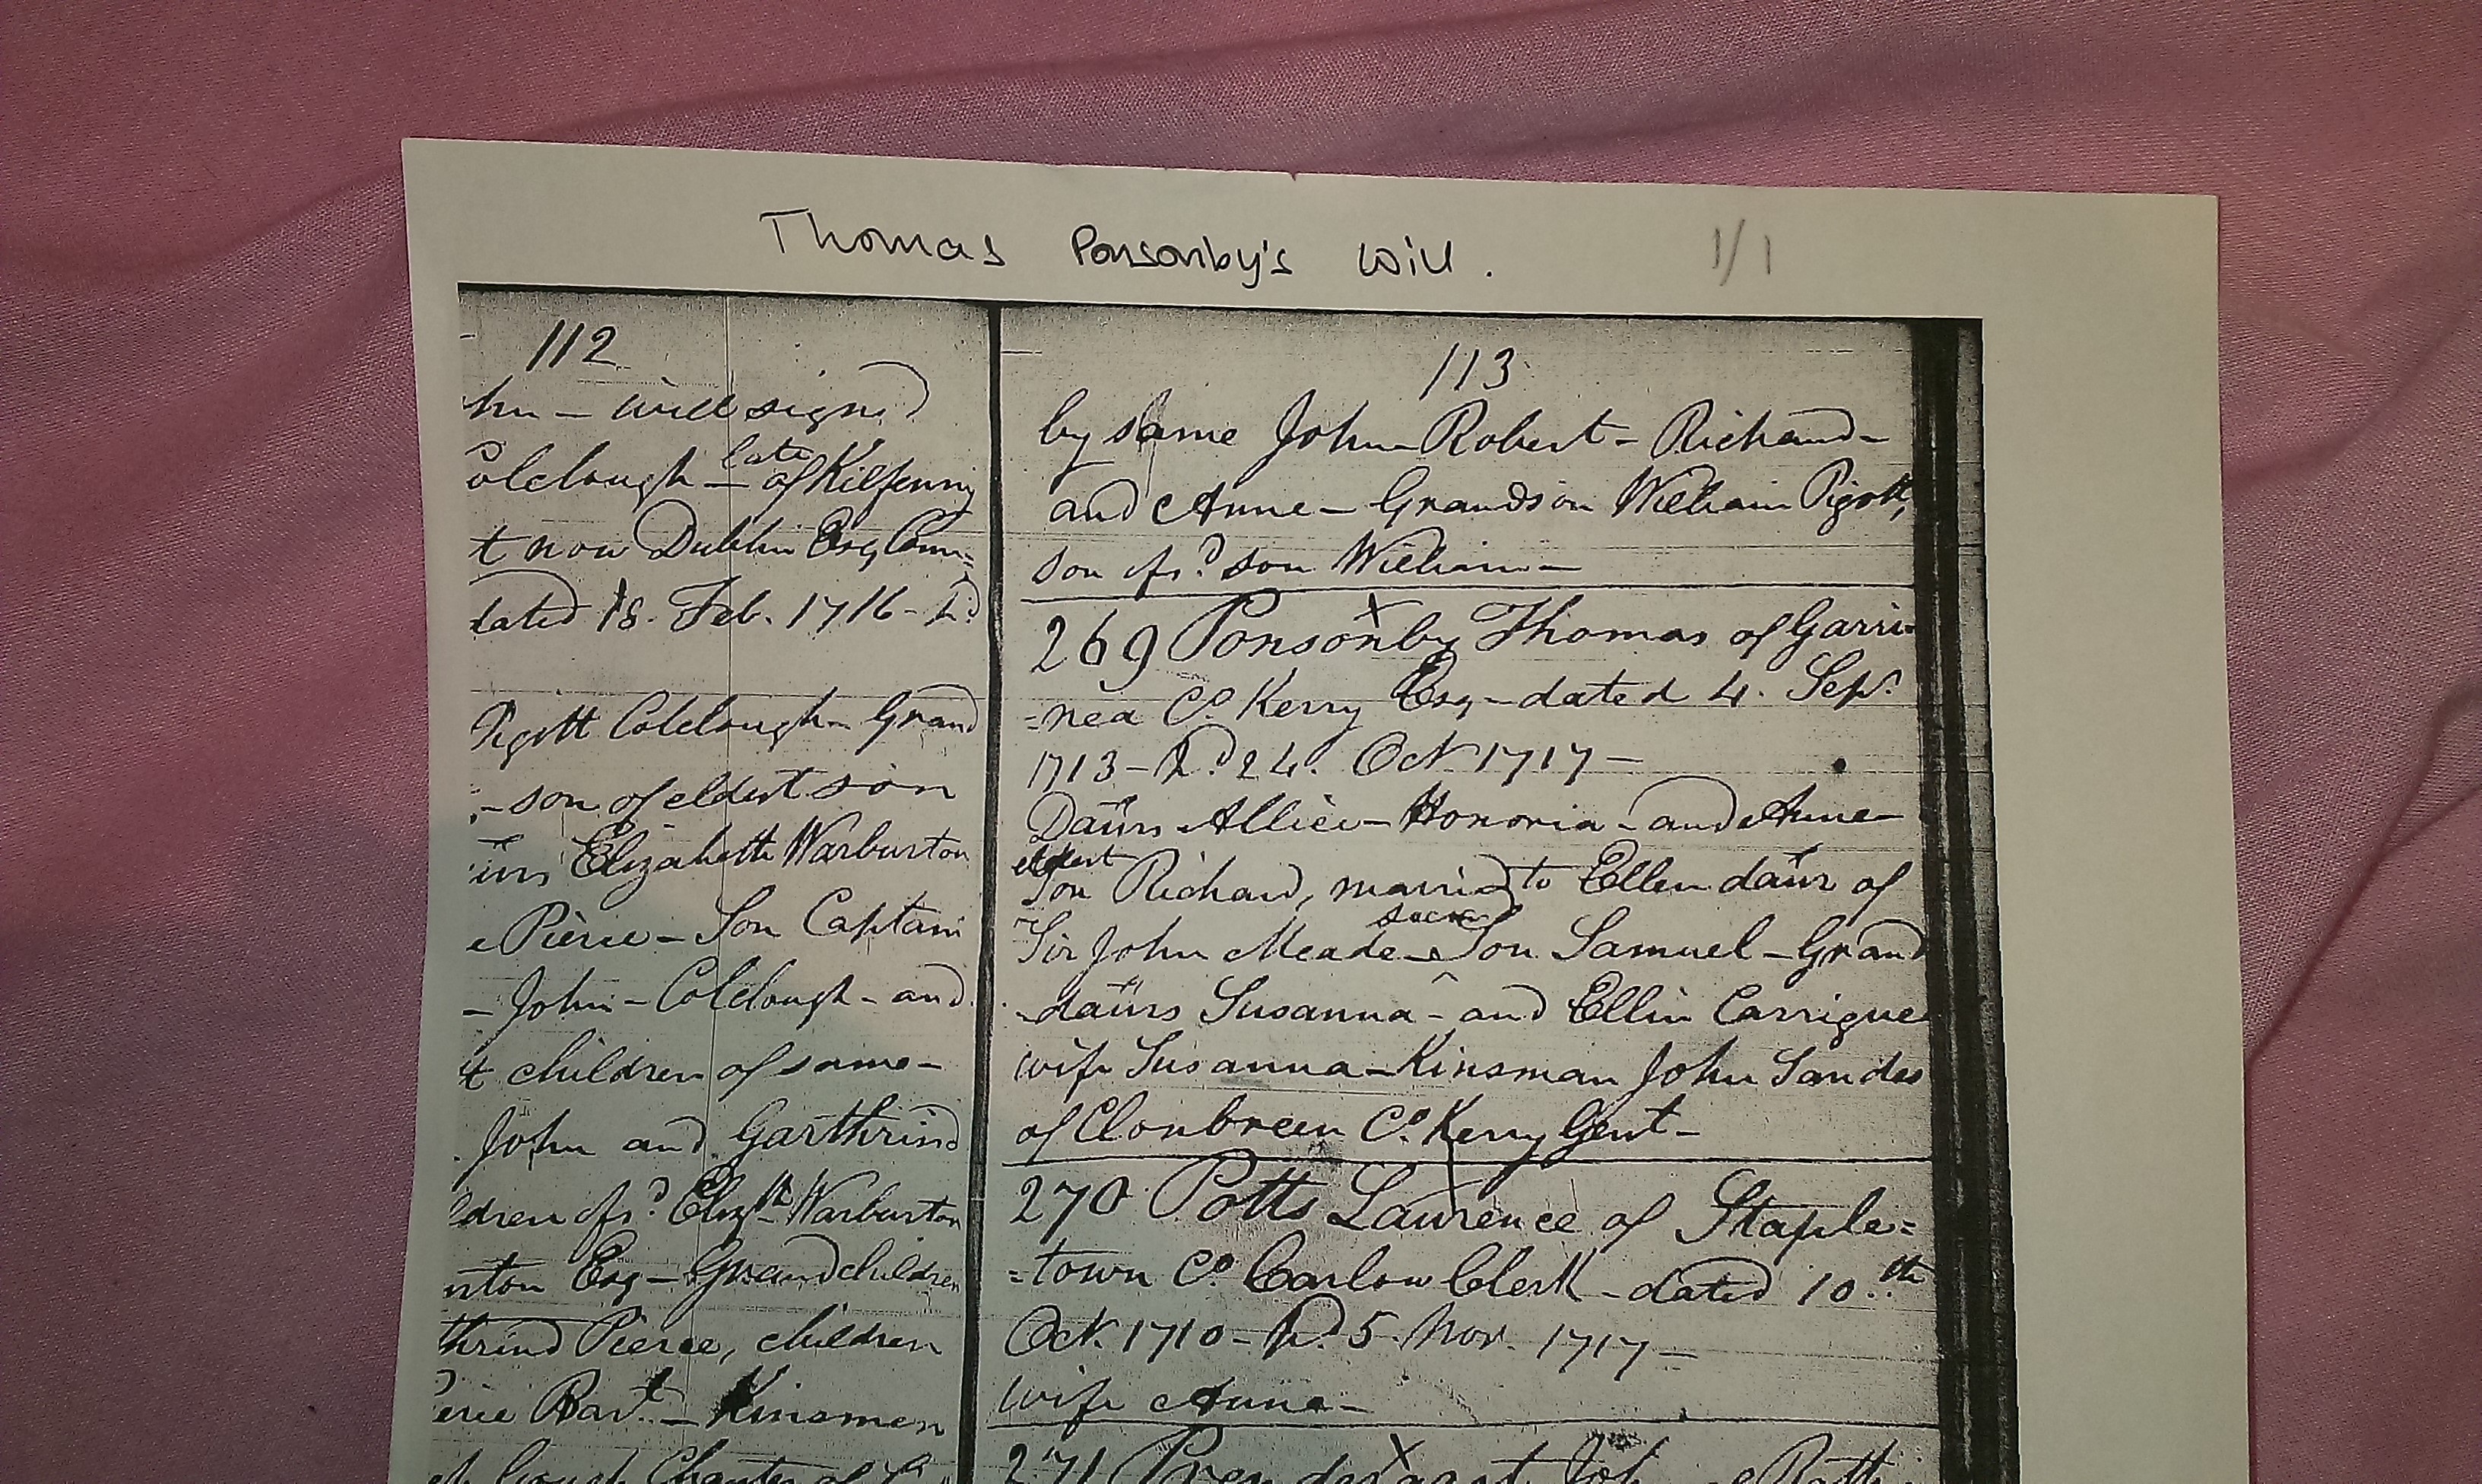 Thomas Ponsonby's Will. 1/1
112
hn - will signd
olclough - late of Kilkenny
t now Dublin Esq Coun=
dated 18. Feb. 1716 - 
Pigott Colclough - Grand
- son of eldest son
Elizabeth Warburton
e Pierce - Son Captain
- John - Colclough - and
children of same -
John and Garthrind
ldren of sd. Elizth Warburton
rton Esq - Grandchildren
thrind Pierce, children
erce Bart. - Kinsmen
Chanter of
113
by same John - Robert - Richard -
and Anne - Grandson William Pigott,
son of sd. son William -
269 Ponsonby Thomas of Garri-
=nea Co. Kerry Esq - dated 4. Sep.
1713 - Pd. 24. Oct 1717 -
Daurs Allice - Honoria - and Anne -
eldest
Son Richard, married to Ellen daur of
Sir John Meade - second Son Samuel - Grand
-daurs Susanna - and Ellin Carrigue
wife Susanna - Kinsman John Sandes
of Clonbreen Co. Kerry Gent -
270 Potts Laurence of Staple=
=town Co. Carlow Clerk - dated 10.th
Oct. 1710 - Pd. 5. Nov. 1717 -
wife Anne -
271 Prendergast